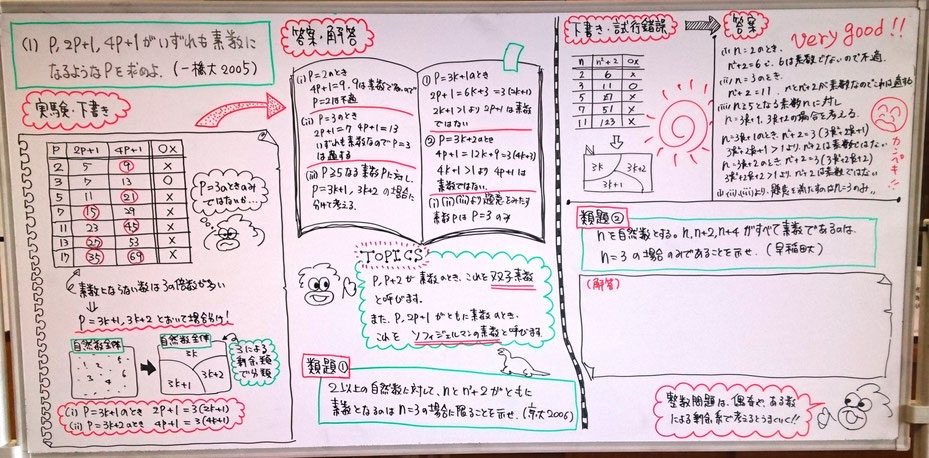 (1) P, 2P+1, 4P+1がいずれも素数に
なるようなPを求めよ. (一橋大2005)
実験・下書き
P 2P+1 4P+1 OX
2 5 9 X
3 7 13 O
5 11 21 X
7 15 29 X
11 23 45 X
13 27 53 X
17 35 69 X
P=3のときのみ
ではないか…
素数とならない数は3の倍数が多い
P=3k+1, 3k+2とおいて場合分け!
自然数全体
1 2 5
3 4 6
自然数全体
3k
3k+1
3k+2
3による
剰余類
で分類
(i) P=3k+1のとき 2P+1=3(2k+1)
(ii) P=3k+2のとき 4P+1=3(4k+3)
答案・解答
(i) P=2のとき
4P+1=9. 9は素数でないので
P=2は不適
(ii) P=3のとき
2P+1=7 4P+1=13
いずれも素数なのでP=3
は適する
(iii) P≧5なる素数Pに対し,
P=3k+1, 3k+2の場合に
分けて考える.
① P=3k+1のとき
2P+1=6k+3=3(2k+1)
2k+1>1より2P+1は素数
ではない
② P=3k+2のとき
4P+1=12k+9=3(4k+3)
4k+1>1より4P+1は
素数ではない.
(i)(ii)(iii)より題意をみたす
素数PはP=3のみ
TOPICS
P, P+2が素数のとき, これを双子素数
と呼びます.
また, P, 2P+1がともに素数のとき,
これをソフィジェルマンの素数と呼びます
類題①
2以上の自然数nに対して, nとn²+2がともに
素数となるのはn=3の場合に限ることを示せ. (京大2006)
下書き・試行錯誤
n n²+2 OX
2 6 X
3 11 O
5 27 X
7 51 X
11 123 X
3k
3k+1
3k+2
答案
very good!!
(i) n=2のとき,
n²+2=6で, 6は素数でないので不適
(ii) n=3のとき,
n²+2=11. nとn²+2が素数なのでこれは適する
(iii) n≧5となる素数nに対し
n=3k+1, 3k+2の場合を考える.
n=3k+1のとき, n²+2=3(3k²+2k+1)
3k²+2k+1>1より, n²+2は素数ではない
n=3k+2のとき n²+2=3(3k²+4k+2)
3k²+4k+2>1より, n²+2は素数ではない
(i)(ii)(iii)より, 題意を満たすのはn=3のみ
カンペキ!!
類題②
nを自然数とする. n, n+2, n+4がすべて素数であるのは,
n=3の場合のみであることを示せ. (早稲田大)
(解答)
整数問題は, 偶奇や, ある数
による剰余系で考えるとうまくいく!!